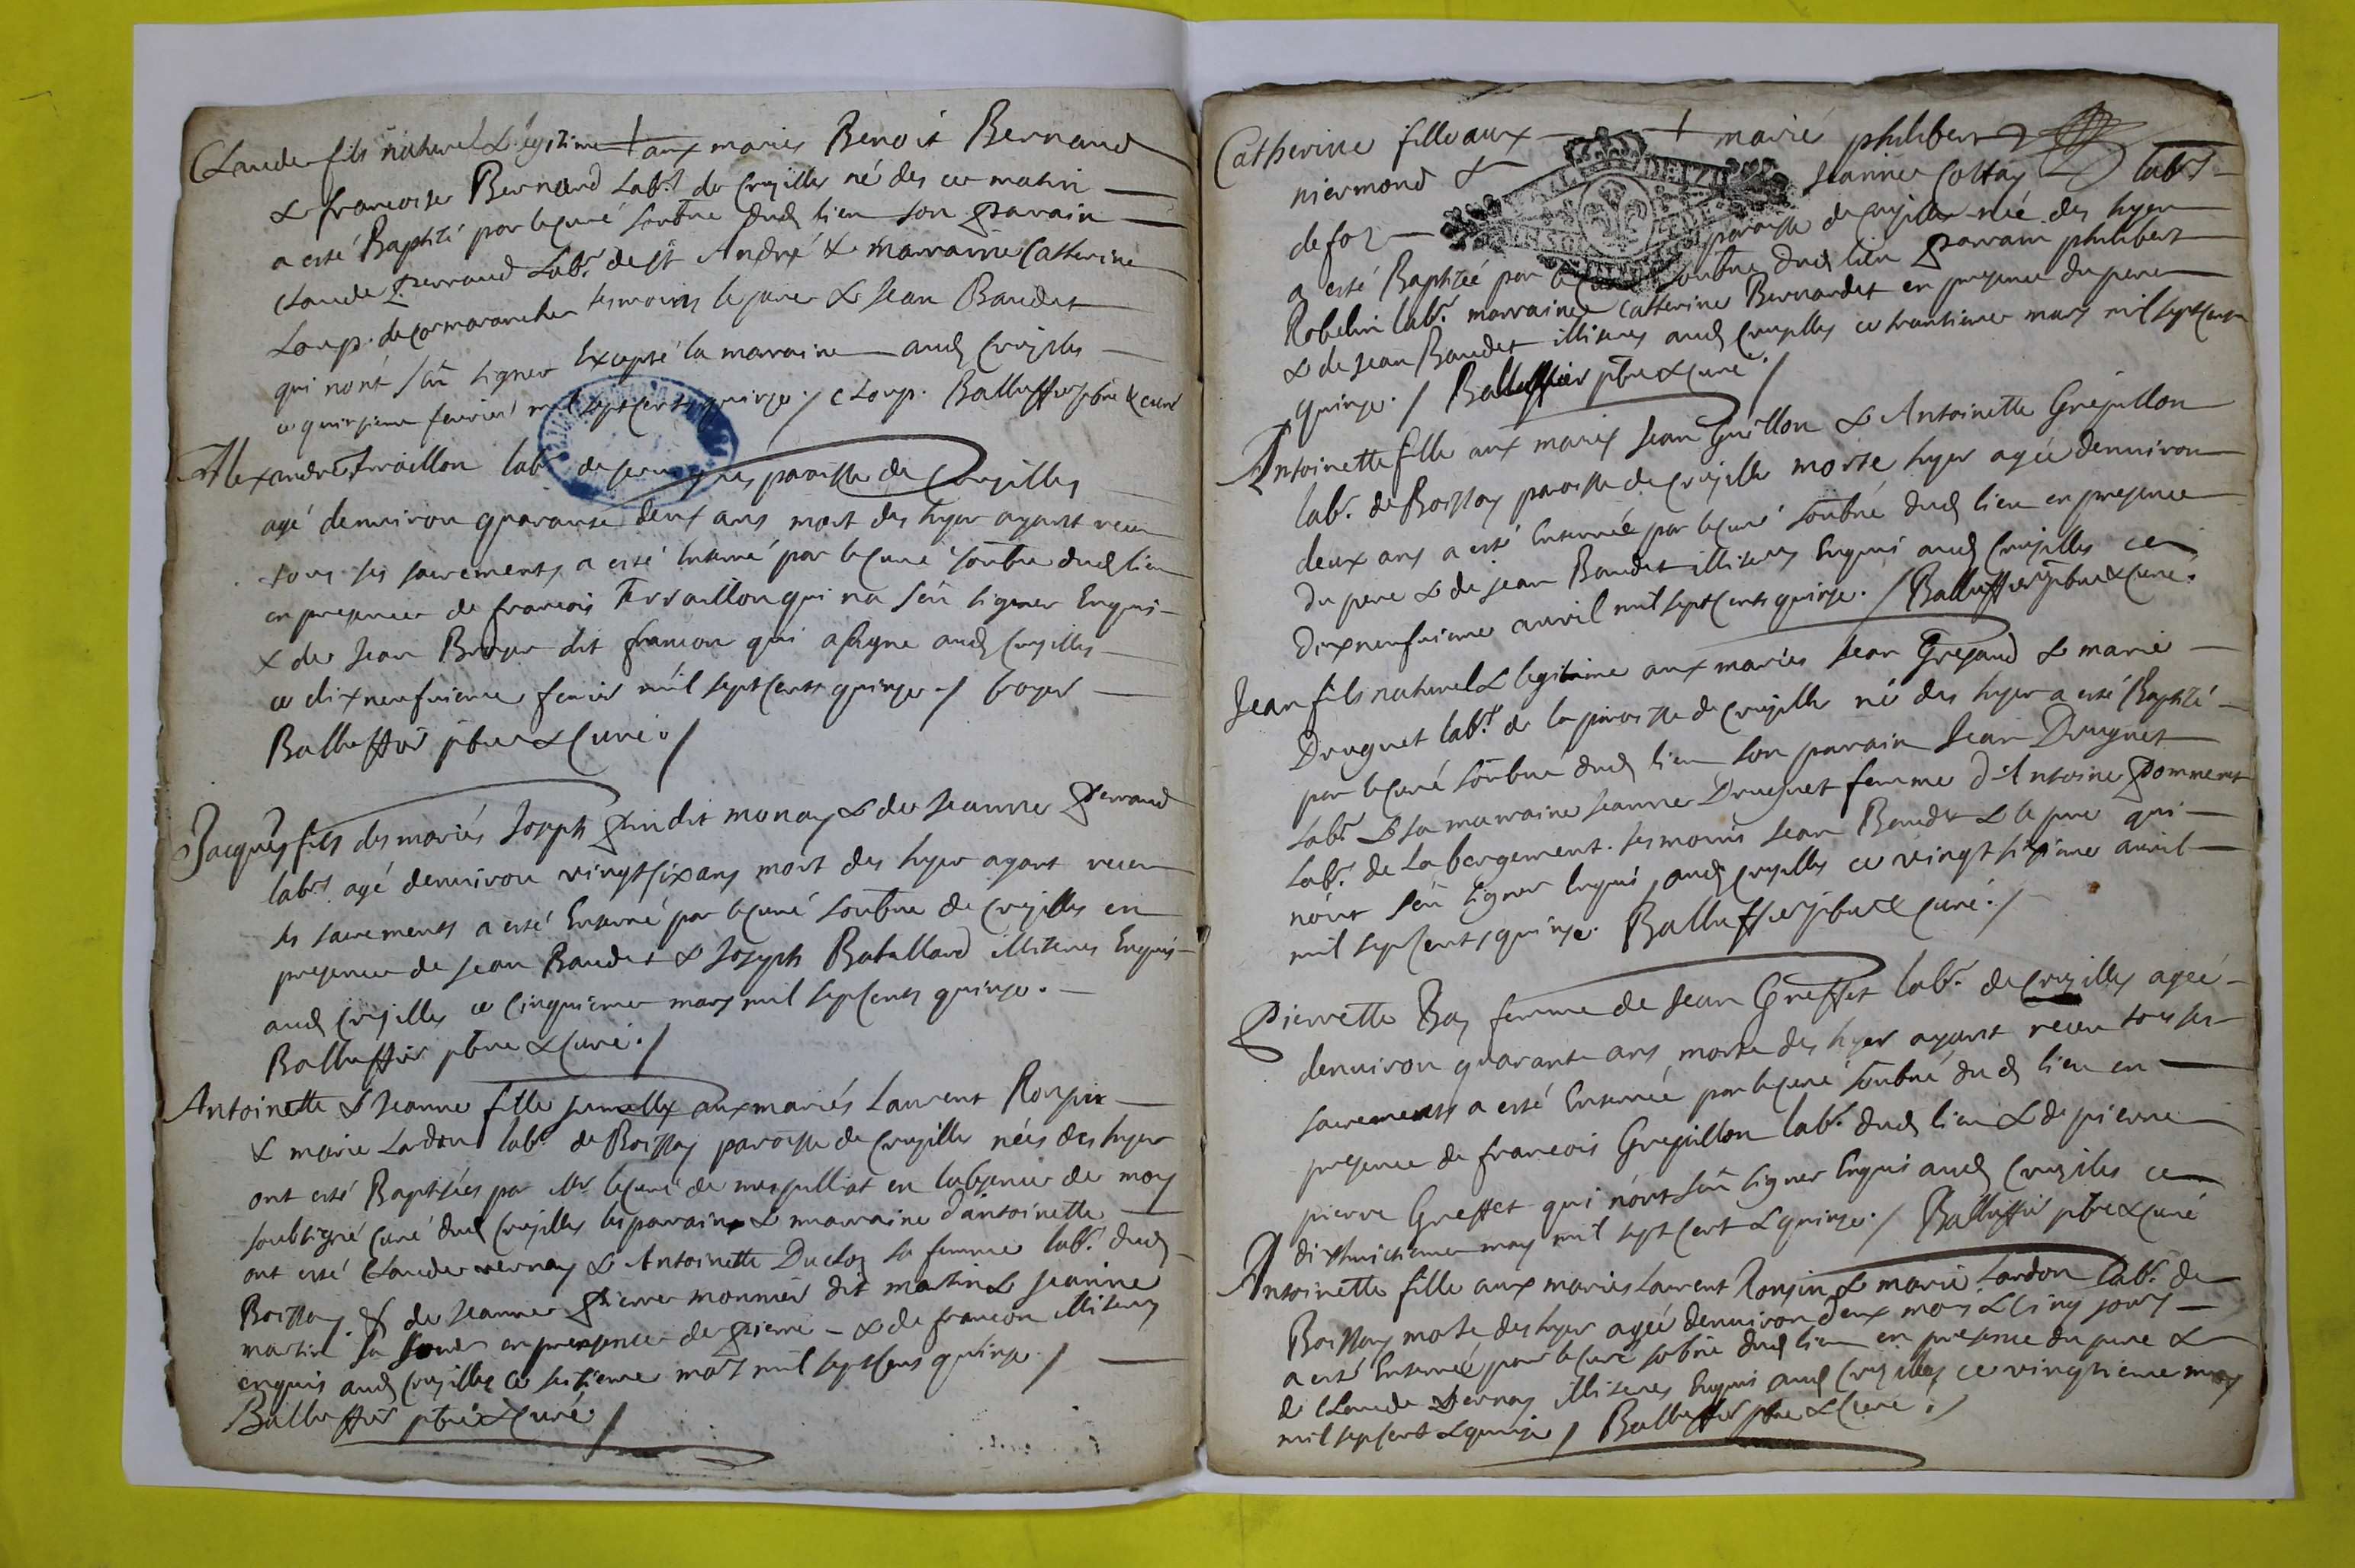 Claude fils naturel & legitime + aux mariés Benoit Bernand
& francoise Bernand lab.rs de Cruzilles né des ce matin
a esté Baptisé par le curé soubné dud lieu son parrain
Claude Perraud lab.r de St André & marraine Catherine
Loup. de cormaranche tesmoins le pere & Jean Baudet
qui n'ont sçû signer Excepté la maraine aud Cruzilles
ce quinzieme feurier mil sept cents quinze ./ C Loup. Balluffier pbre & curé
Alexandre terraillon lab.r de paroisse de Cruzilles
agé denuiron quarante deux ans mort des hyer ayant receu
tous ses sacrements a esté Enterré par le Curé soubné dud lieu
en presence de francois Terraillon qui na sçû signer Enquis
& de Jean Broyer dit francon qui a signe aud Cruzilles
ce dixneufuieme feurier mil sept cents quinze ./ broyer
Balluffier pbre & Curé ./
Jacques fils des mariés Joseph Pin dit monay & de Jeanne Perraud
lab.rs agé denuiron vingt six ans mort des hyer ayant receu
ses sacrements a esté Enterré par le curé soubné de Cruzilles en
presence de Jean Baudet & Joseph Batallard illiteres Enquis
aud Cruzilles ce cinquieme mars mil sept cents quinze .
Balluffier pbre & Curé ./
Antoinette & Jeanne fille jumelles aux mariés Laurent Ronjin
& marie Lardon lab.rs de Boissay paroisse de Cruzilles nées des hyer
ont esté Baptisées par Mr le curé de mespulliat en labsence de moy
soubsigné Curé dud Cruzilles les parain & marraine d'antoinette
ont esté Claude vernay & Antoinette Duclos sa femme lab.rs dud
Boissay & de Jeanne Pierre monnier dit martin & Jeanne
martin sa en presence de pierre - & de francon illiteres
enquis aud Cruzilles ce mars mil sept cens quinze ./
Balluffier pbre & Curé ./
Catherine fille aux + marié philibert
niermond & Jeanne Cottay lab.rs
de foz paroisse de Cruzilles née des hyer
a esté Baptisée par le Curé soubné dud lieu Parrain philibert
Robelin lab.r marraine Catherine Bernardet en presence du pere
& de Jean Baudet illiteres aud Cruzilles ce trantieme mars mil sept cents
quinze. / Balluffier pbre & curé ./
Antoinette fille aux mariés Jean Guillon & Antoinette Grezillon
lab.rs de Boissay paroisse de Cruzilles morte hyer agée denuiron
deux ans a esté Enterrée par le curé soubné dud lieu en presence
du pere & de Jean Baudet illiteres Enquis aud Cruzilles ce
dixneufuieme auril mil sept cents quinze. / Balluffier pbre & Curé.
Jean fils naturel & legitime aux mariés Jean Gregaud & marie
Druguet lab.rs de la paroisse de Cruzilles né des hyer a esté Baptisé
par le curé soubné dud lieu son parrain Jean Druguet
lab.r & sa marraine Jeanne Druguet femme d'Antoine Pomneret
lab.r de Labergement. tesmoins Jean Baudet & le pere qui
n'ont sçû signer Enquis aud Cruzilles ce vingt auril
mil sept cents quinze. Balluffier pbre & Curé ./
Pierrette Bay femme de Jean Greffet lab.r de Cruzilles agée
denuiron quarante ans morte des hyer ayant receu tous ses
sacrements a esté Enterrée par le curé soubné dud lieu en
presence de francois Grezillon lab.r dud lieu & de pierre
pierre Greffet qui n'ont sçû signer Enquis aud Cruzilles ce
dixhuictieme may mil sept cent & quinze ./ Balluffier pbre & Curé
Antoinette fille aux mariés Laurent Ronjin & marie Lardon lab.rs de
Boissay morte des hyer agée denuiron deux moys & cinq jours
a esté Enterrée par le curé soubné dud lieu en presence du pere &
de Claude Vernay illiteres Enquis aud Cruzilles ce vingtieme may
mil sept cent & quinze / Balluffier pbre & Curé ./